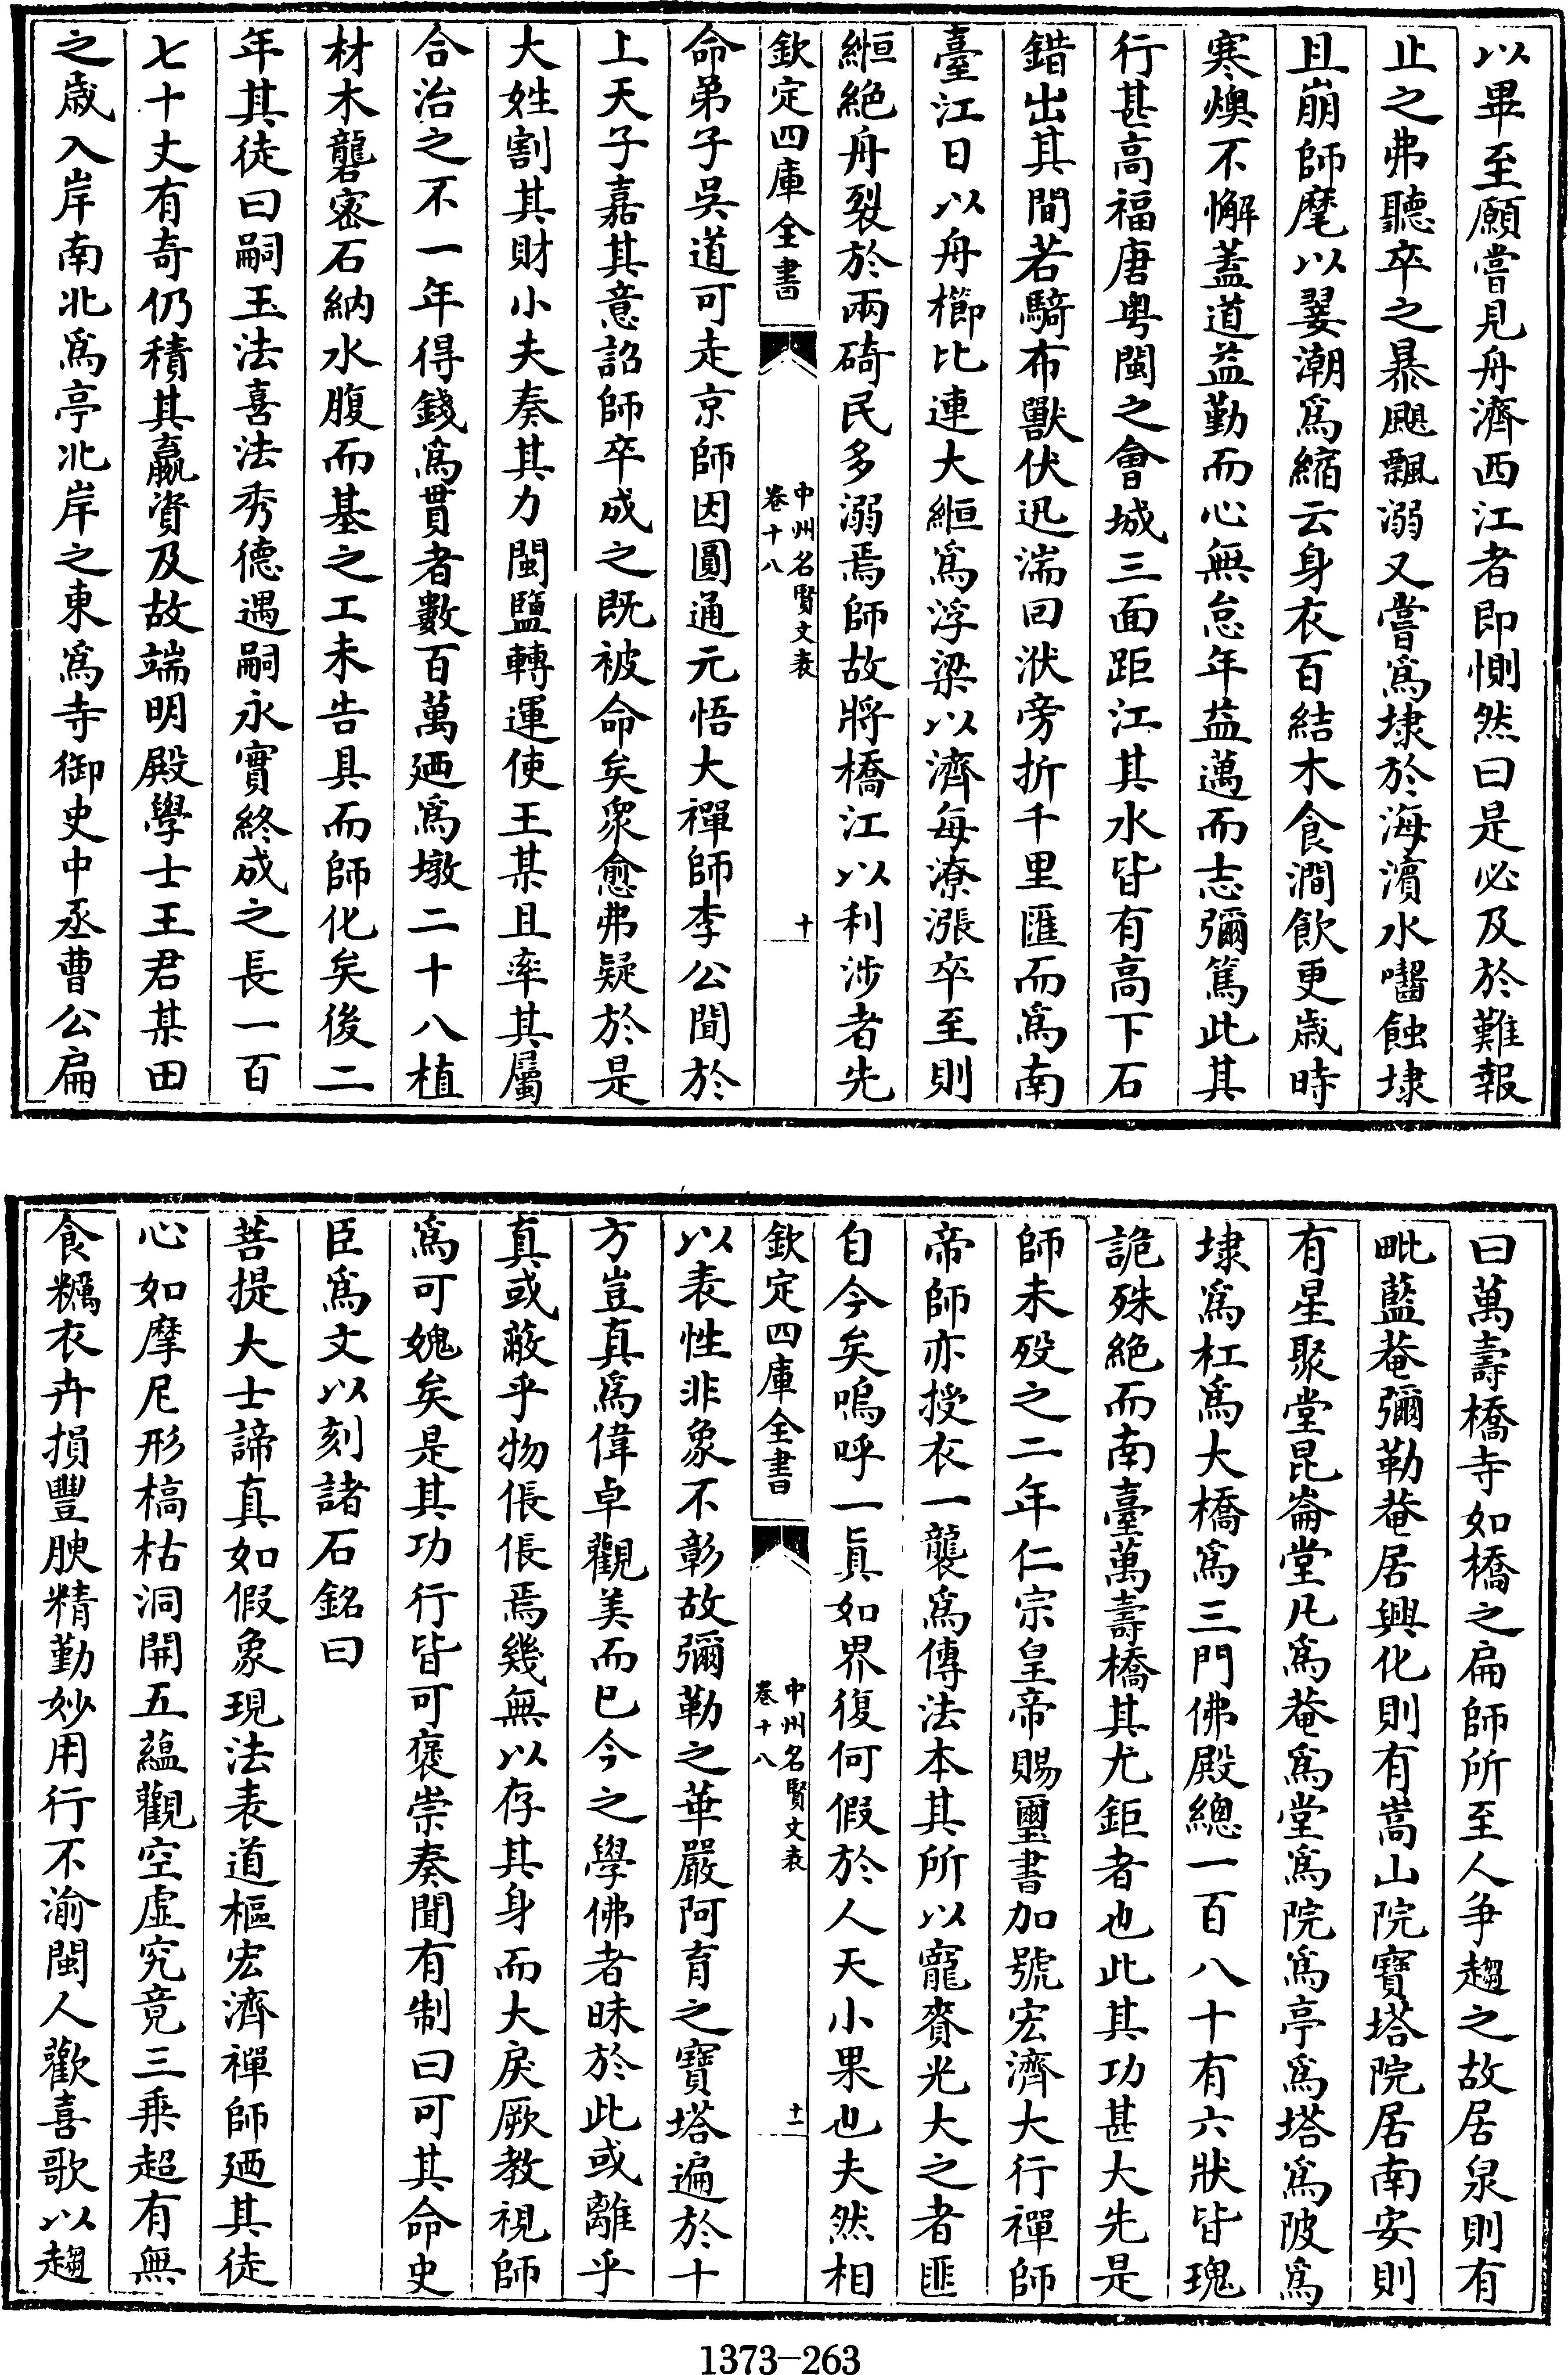 以畢至願嘗見舟濟西江者即惻然曰是必及於難報
止之弗聽卒之暴颶飄溺又嘗為埭於海濱水囓蝕埭
且崩師麾以翣潮為縮云身衣百結木食澗飲更歲時
寒燠不懈蓋道益勤而心無怠年益邁而志彌篤此其
行甚高福唐粤閩之會城三面距江其水皆有高下石
錯出其間若騎布獸伏迅湍回洑旁折千里匯而為南
臺江日以舟櫛比連大絙為浮梁以濟每潦漲卒至則
絙絶舟裂於兩碕民多溺焉師故將橋江以利涉者先
欽定四庫全書
中州名賢文表
卷十八
十
命弟子吳道可走京師因圓通元悟大禪師李公聞於
上天子嘉其意詔師卒成之既被命矣衆愈弗疑於是
大姓割其財小夫奏其力閩鹽轉運使王某且率其屬
合治之不一年得錢為貫者數百萬廼為墩二十八植
材木礱密石納水腹而基之工未告具而師化矣後二
年其徒曰嗣玉法喜法秀德遇嗣永實終成之長一百
七十丈有奇仍積其贏資及故端明殿學士王君某田
之歲入岸南北為亭北岸之東為寺御史中丞曹公扁
曰萬壽橋寺如橋之扁師所至人爭趨之故居泉則有
毗藍菴彌勒菴居興化則有嵩山院寶塔院居南安則
有星聚堂昆崙堂凡為菴為堂為院為亭為塔為陂為
埭為杠為大橋為三門佛殿總一百八十有六狀皆瑰
詭殊絶而南臺萬壽橋其尤鉅者也此其功甚大先是
師未歿之二年仁宗皇帝賜璽書加號宏濟大行禪師
帝師亦授衣一襲為傳法本其所以寵賚光大之者匪
自今矣嗚呼一真如界復何假於人天小果也夫然相
欽定四庫全書
中州名賢文表
卷十八
十一
以表性非象不彰故彌勒之華嚴阿育之寶塔遍於十
方豈真為偉卓觀美而已今之學佛者昧於此或離乎
真或蔽乎物倀倀焉幾無以存其身而大戾厥教視師
為可媿矣是其功行皆可褒崇奏聞有制曰可其命史
臣為文以刻諸石銘曰
菩提大士諦真如假象現法表道樞宏濟禪師廼其徒
心如摩尼形槁枯洞開五蘊觀空虛究竟三乘超有無
食糲衣卉損豐腴精勤妙用行不渝閩人歡喜歌以趨
1373-263